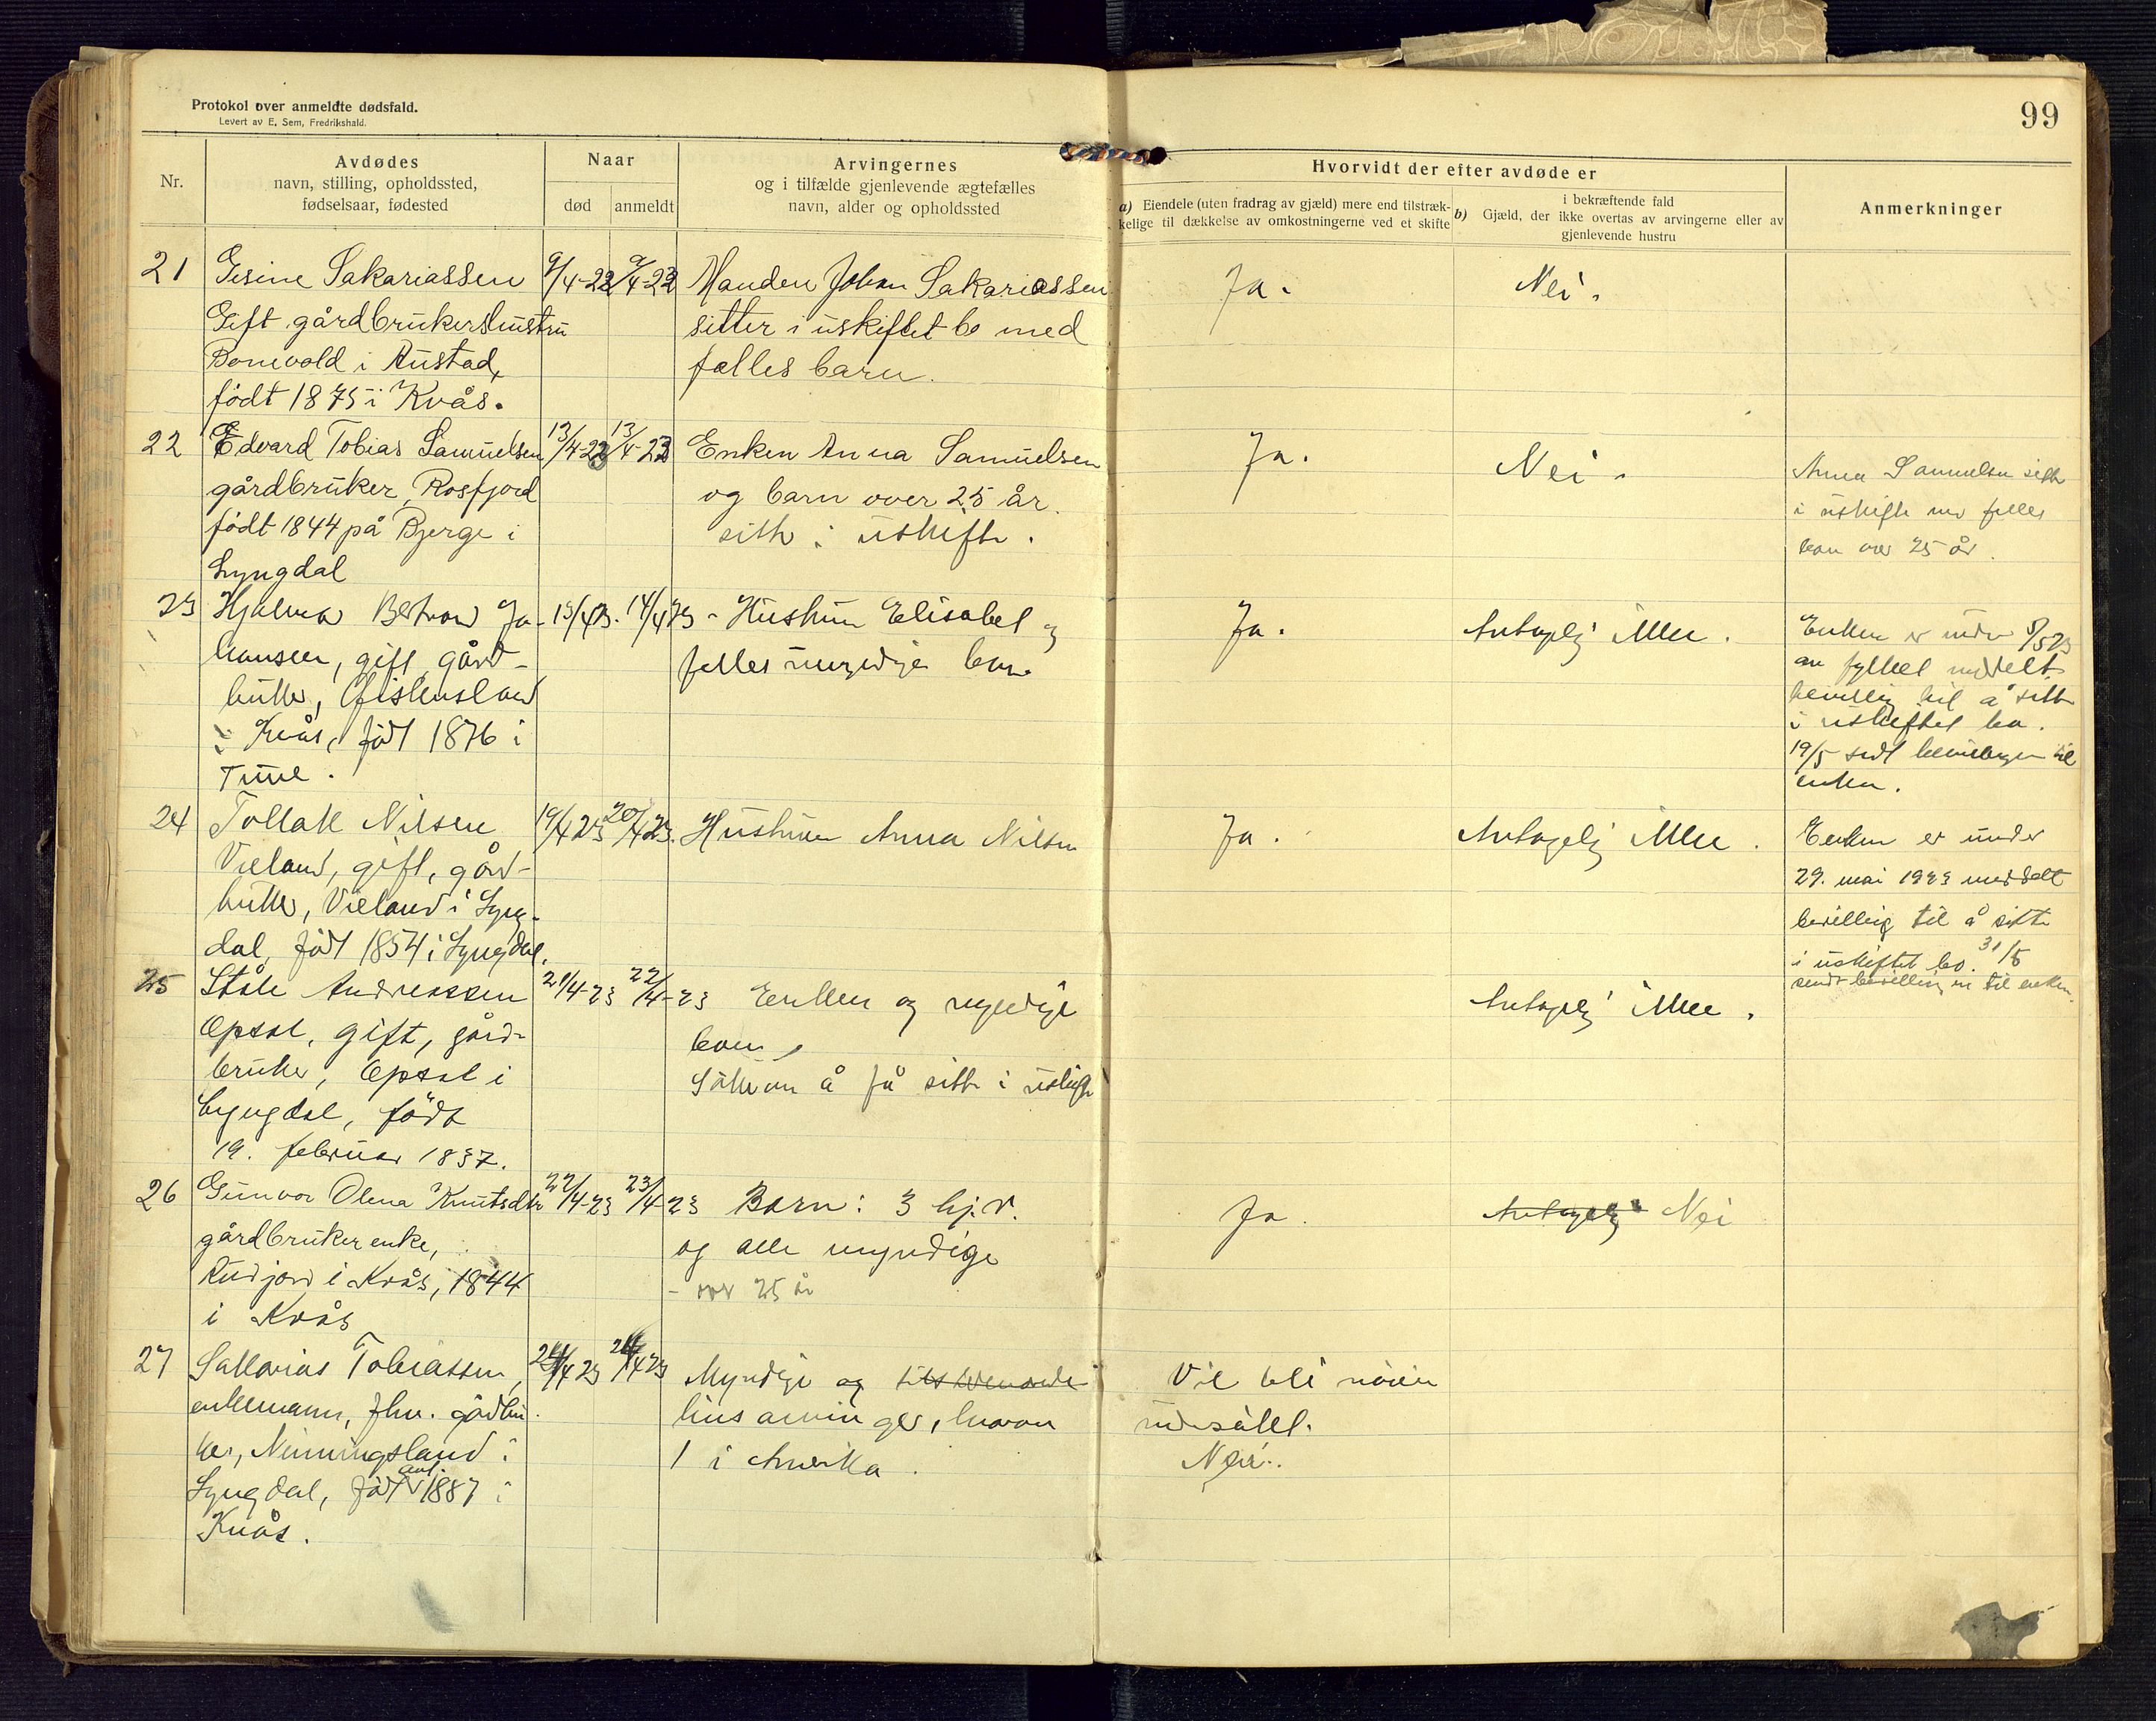 Protokol over anmeldte dødsfald.
Levert av E. Sem, Fredrikshald.
99
Nr.
Avdødes
navn, stilling, opholdssted,
fødselsaar, fødested
Naar
død
anmeldt
Arvingernes
og i tilfælde gjenlevende ægtefælles
navn, alder og opholdssted
Hvorvidt der efter avdøde er
a) Eiendele (uten fradrag av gjæld) mere end tilstræk-
kelige til dækkelse av omkostningerne ved et skifte
i bekræftende fald
b) Gjæld, der ikke overtas av arvingerne eller av
gjenlevende hustru
Anmerkninger
21
Gesine Sakariassen
Gift gårdbrukershustru
i Austad,
født 1875 i Kvås.
9/4-23
9/4-23
Manden Johan Sakariassen
sitter i uskiftet bo med
fælles barn.
Ja.
Nei.
22
Edvard Tobias Samuelsen
gårdbruker, Rosfjord
født 1844 på Bjerge i
Lyngdal
13/4-23
13/4-23
Enken Anna Samuelsen
og barn over 25 år.
sitter i uskifte.
Ja.
Nei.
Anna Samuelsen sitter
i uskifte med felles
barn over 25 år.
23
Hjalmar Bertrand Jo-
hansen, gift, gård-
bruker,
i Kvås, født 1876 i
Time.
13/4 23.
14/4 23
- Hustruen Elisabet og
felles umyndige barn
Ja.
Antagelig ikke.
Enken er under 8/5 23
av fylket meddelt
bevilling til å sitte
i uskiftet bo.
19/5 sendt bevillingen til
enken.
24
Tollak Nilsen
Vieland, gift, gård-
bruker, Vieland i Lyng-
dal, født 1854 i Lyngdal.
19/4 23
20/4 23.
Hustruen Anna Nilsen
Ja.
Antagelig ikke.
Enken er under
29. mai 1923 meddelt
bevilling til å sitte
i uskiftet bo. 31/5
sendt bevillingen til enken.
25
Ståle Andreassen
Opsal, gift, gård-
bruker, Opsal i
Lyngdal, født
19. februar 1837.
21/4-23
22/4-23
Enken og myndige
barn,
Søker om å få sitte i uskifte
Antagelig ikke.
26
Gunvor Olena Knutsdtr
gårdbrukerenke,
Rudjord i Kvås, 1844
i Kvås
22/4-23
23/4-23
Barn: 3 hj. v.
og alle myndige
- over 25 år
Ja.
Antagelig Nei
27
Sakarias Tobiassen,
enkemann, fhv. gårdbru-
ker, i
Lyngdal, født ant. 1887 i
Kvås.
24/4 23
24/4 23
Myndige og tilstedeværende
livsarvinger, hvorav
1 i Amerika.
Vil bli nøiere
undersøket.
Nei.